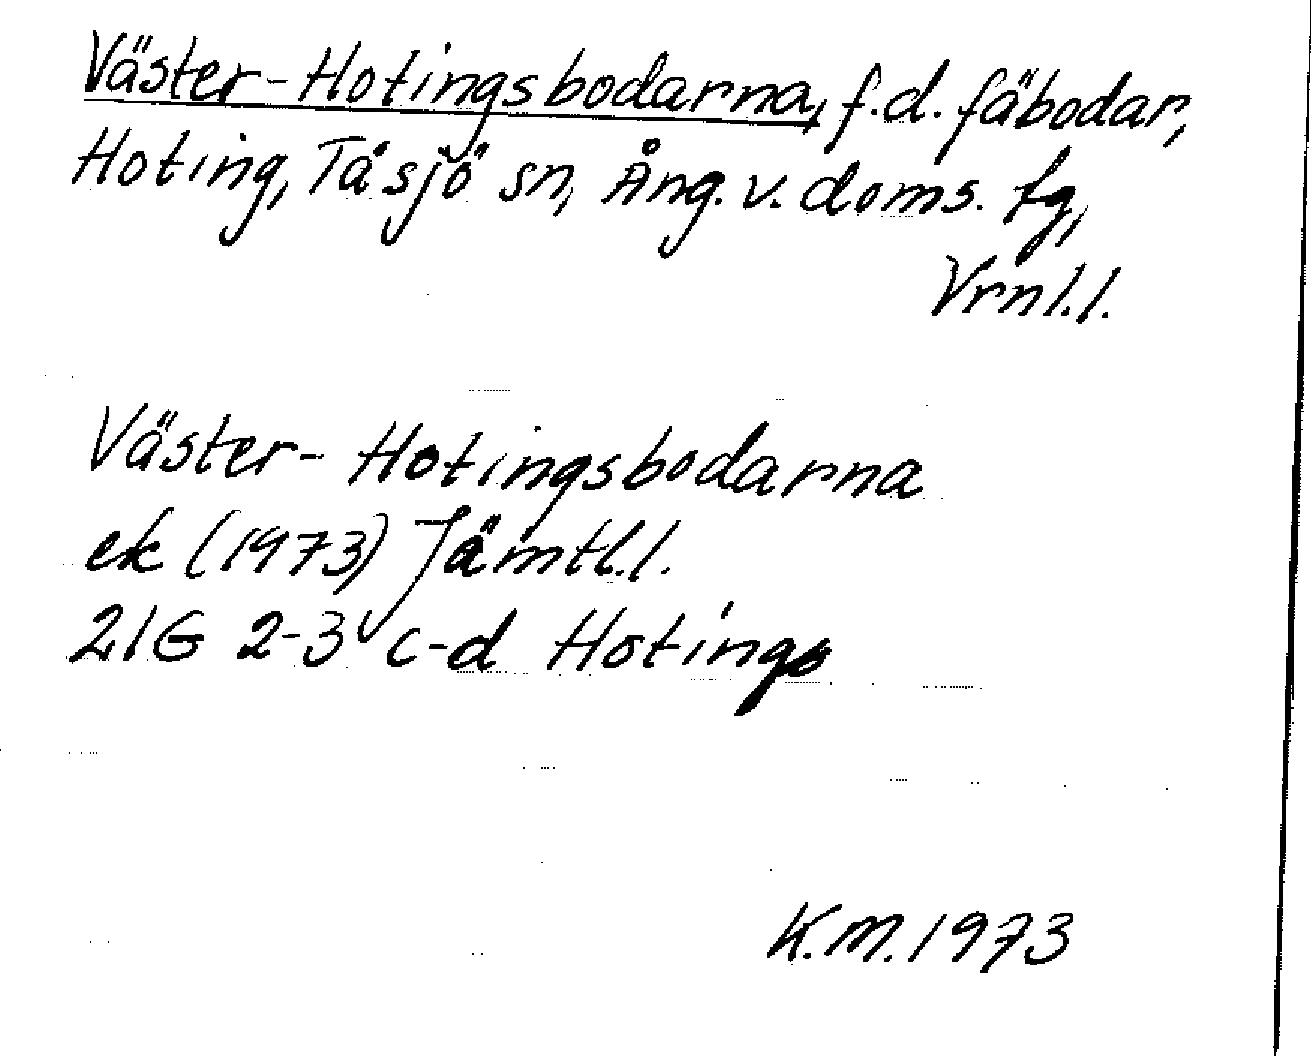 Väster-Hotingsbodarna, f.d. fäbodar,
Hoting, Tåsjö sn, Ång. v. doms. fg,
Vrnl.l.
Väster-Hotingsbodarna
ek (1973) Jämtl.l.
21G 2-3 c-d Hoting
K.M. 1973